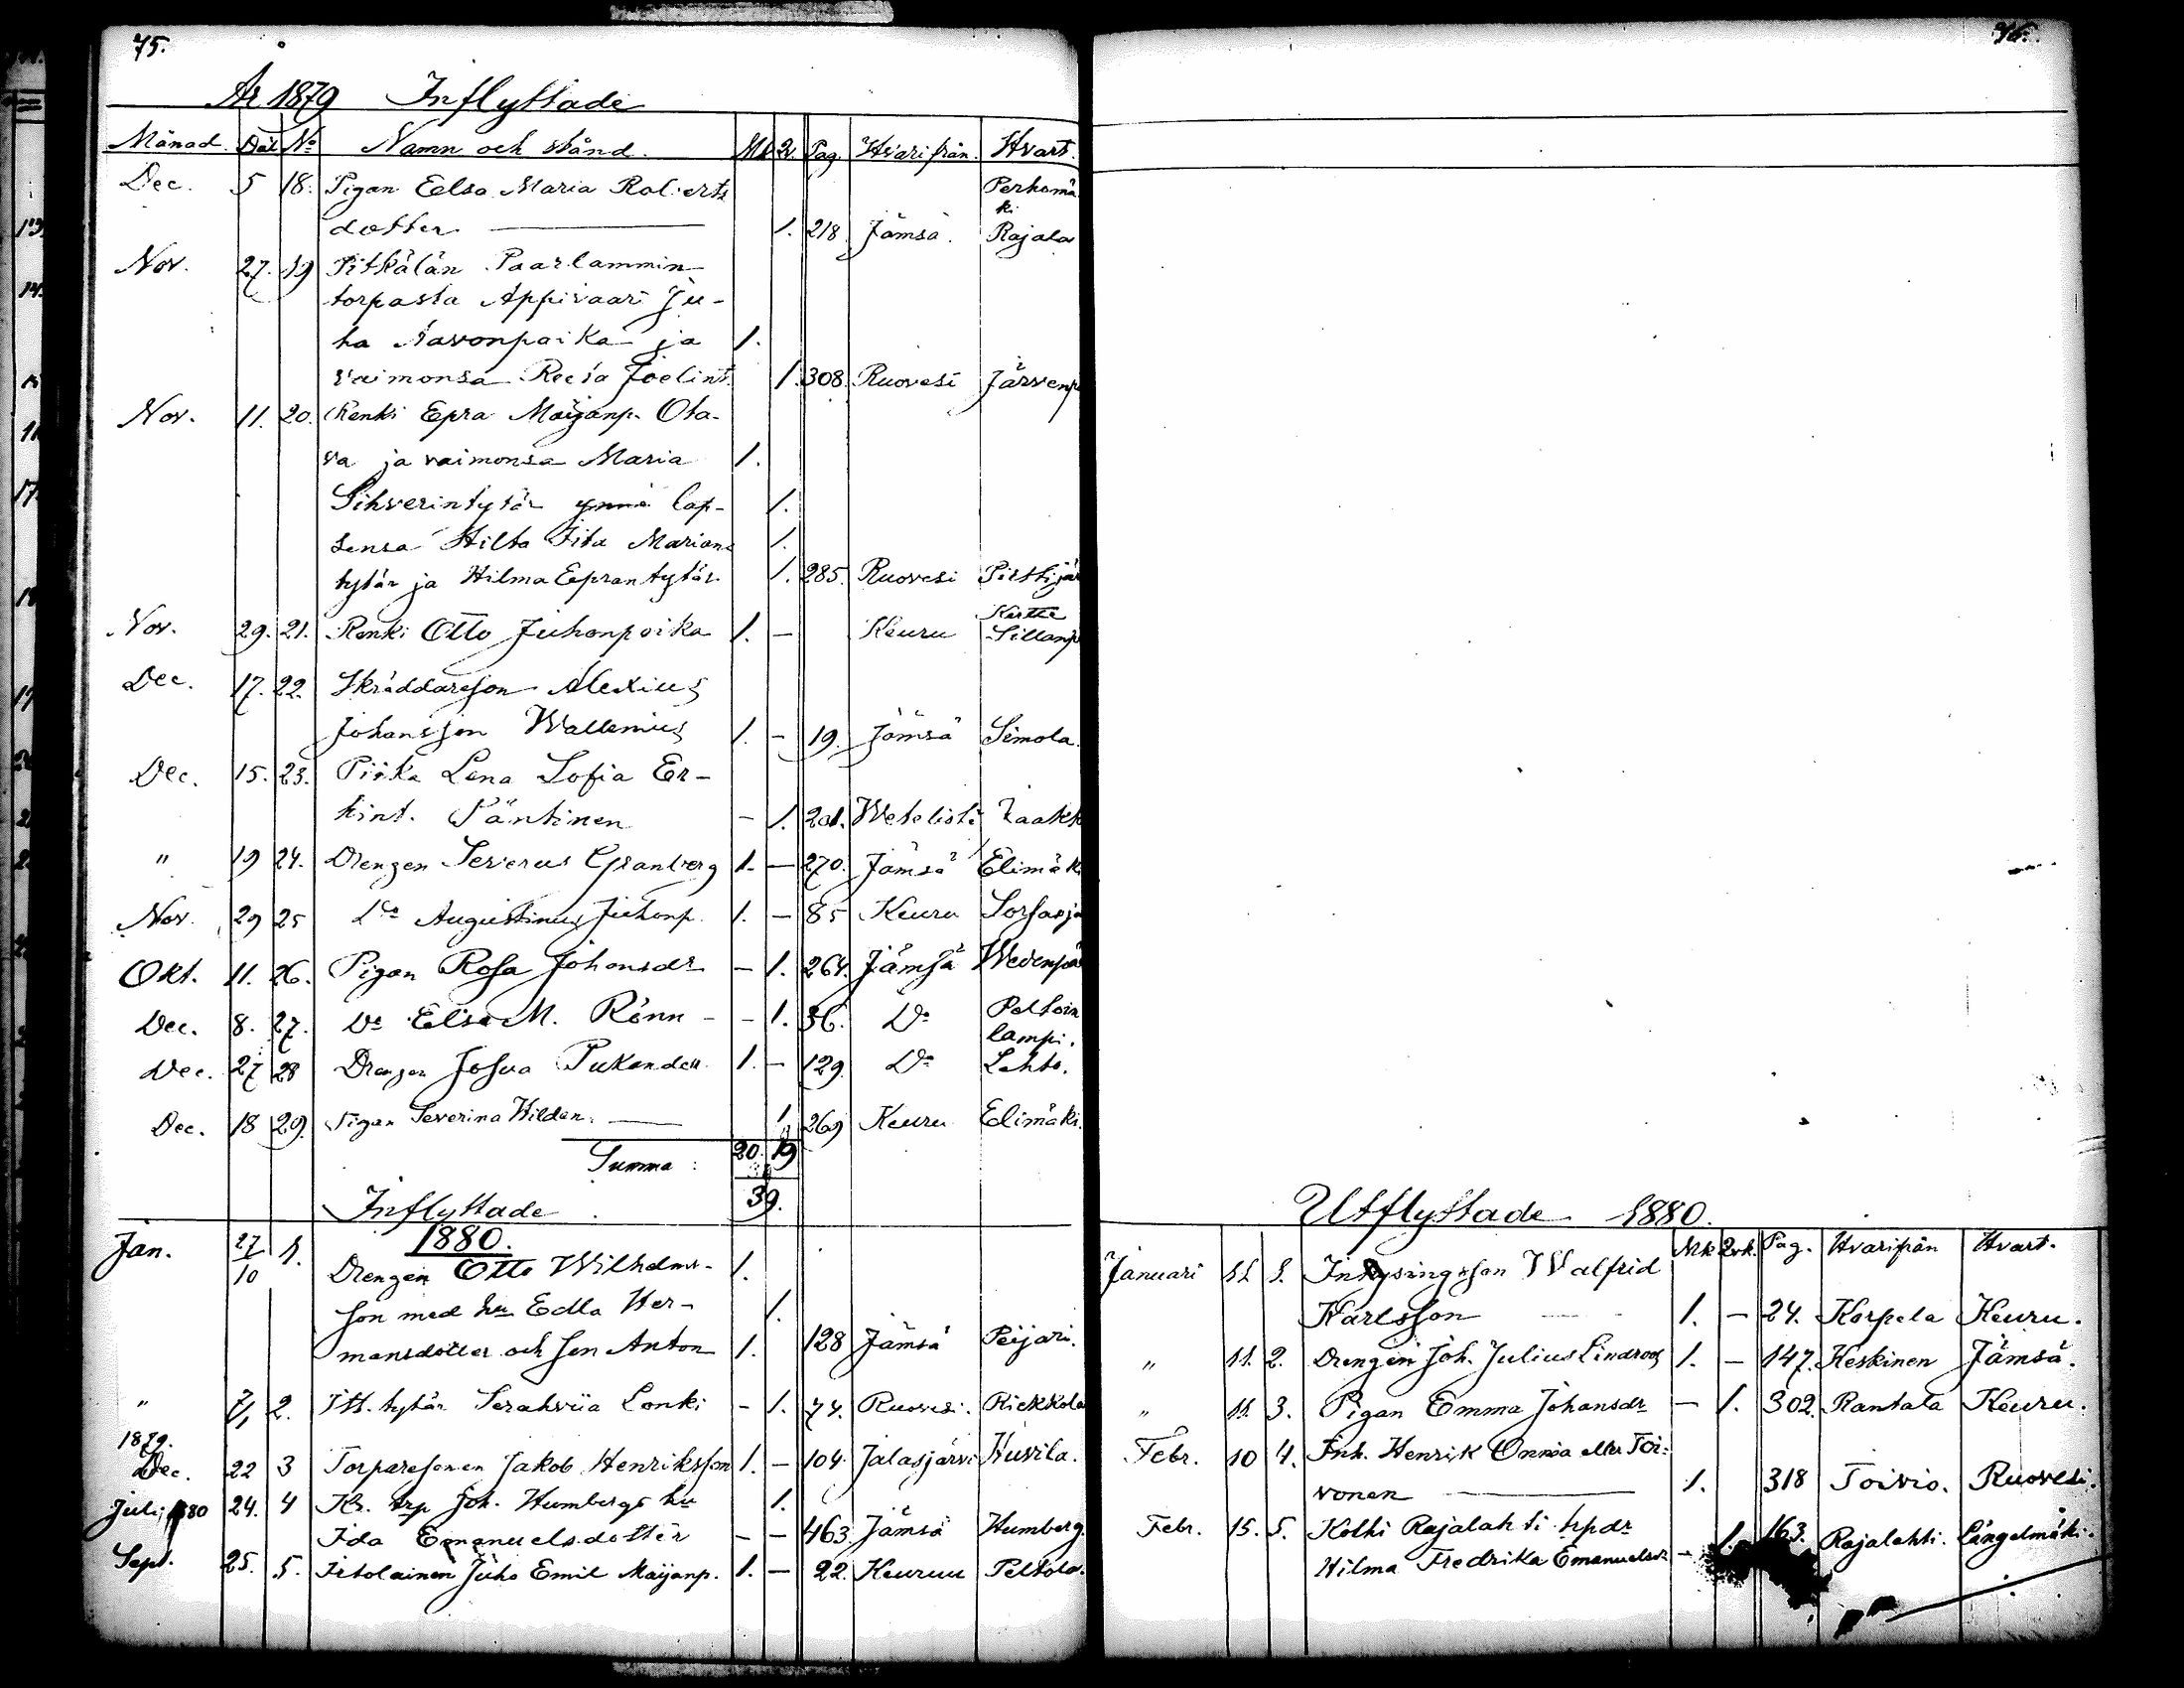 75.
År 1879 Inflyttade
Månad. Dat. No Namn och stånd. Mk. Qv. Pag. Hvarifrån. Hvart.
Dec. 5 18. Pigan Eelsa Maria Roberts Perhomä
ki
dotter. — 1. 218. Jämsä. Rajala
Nov. 27. 19 Pitkälän Paarlammin
torpasta Appivaari Ju-
ha Aavonpaika ja 1.
vaimonsa Reeta Joelint. 1. 308. Ruovesi Järvenp
Nov. 11. 20. Renki Epra Maijanp. Ota-
va ja vaimonsa Maria 1.
Sihverintytär ynnä lap- 1.
sensa Hilta Iita Marian 1.
tytär ja Hilma Eeprantytär. 1. 285. Ruovesi Pirttijär
Nov. 29. 21. Renki Otto Juhonpoika 1. — Keuru Sillanp
Dec. 17. 22. Skräddareson Alexius
Johansson Wallenius 1. - 19. Jämsä Simola.
Dec. 15. 23. Piika Lena Sofia Er-
kint. Päntinen - 1. 201. Wetelistä Laakk
" 19 24. Drengen Severus Granberg 1. — 270. Jämsä Elimäk
Nov. 29 25 Do Augustinus Juhonp. 1. — 85 Keuru Sorsasj
Okt. 11. 26. Pigan Rosa Johansdr — 1. 264. Jämsä Wedenpä
Dec. 8. 27. Do Elsa M. Rönn - - 1. 36. Do Peltoin
lampi.
Dec. 27 28 Drengen Josva Pukander. 1. — 129. Do Lehto.
Dec. 18 29. Pigan Severina Hilden. — 1 269 Keuru Elimäki.
Summa: 20. 19
39.
Inflyttade
1880.
Jan. 27/10 1. Drengen Otto Wilhelms- 1.
son med hu Edla Her- 1.
mansdotter och son Anton 1. 128 Jämsä Peijari.
" 7/1 2. Itt. tytär Serahviia Lonki - 1. 74. Ruovesi. Riekkola
1879.
Dec. 22 3 Torparesonen Jakob Henriksson 1. — 104. Jalasjärvi Huvila.
Juli 1880 24. 4 Kr. trp Joh. Humbergs hu 1.
Ida Emanuelsdotter — — 463. Jämsä Humberg.
Sept. 25. 5. Itsolainen Juho Emil Maijanp. 1. — 22. Keuruu Peltola.
76.
Utflyttade 1880.
Mk Qvk. Pag. Hvarifrån Hvart.
Januari 11 1. Inhysingsson Walfrid
Karlsson 1. — 24. Korpela Keuru.
" 11. 2. Drengen Joh. Julius Lindroos 1. — 147. Keskinen Jämsä.
" 11. 3. Pigan Emma Johansdr — 1. 302. Rantala Keuru.
Febr. 10 4. Inh. Henrik Onnia eller Toi-
vonen — 1. 318 Toivio. Ruovesi.
Febr. 15. 5. Kolhi Rajalahti trpdr
Hilma Fredrika Emanuelsdr - 1. 163. Rajalahti. Längelmäki.